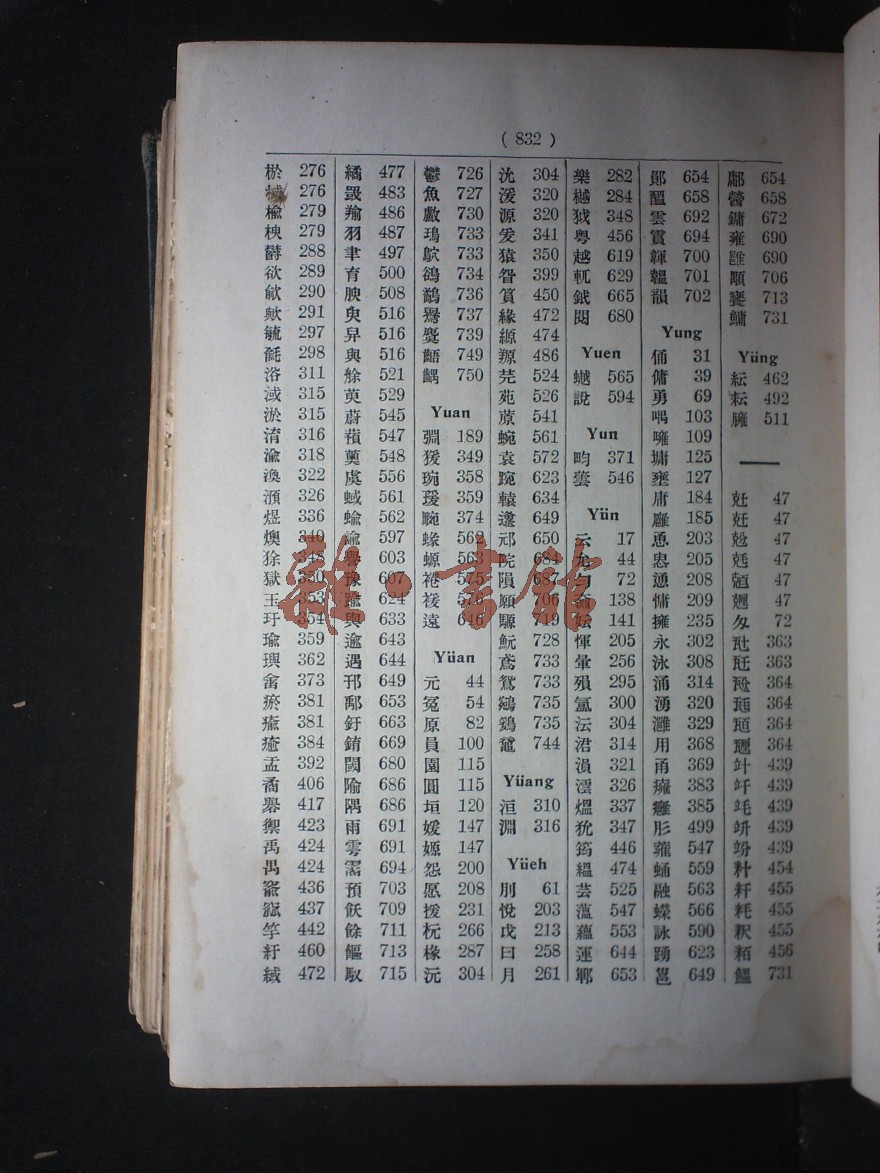 ( 832 )
於 276
棫 276
楡 279
楰 279
欝 288
欲 289
歈 290
歟 291
毓 297
毹 298
浴 311
淢 315
淤 315
淯 316
渝 318
澳 322
澦 326
煜 336
燠 340
狳 348
獄 350
玉 353
玗 354
瑜 359
璵 362
畬 373
瘀 381
瘉 381
癒 384
盂 392
矞 406
礜 417
禦 423
禹 424
禺 424
窬 436
窳 437
竽 442
紆 460
緎 472
繘 477
罭 483
羭 486
羽 487
聿 497
育 500
腴 508
臾 516
舁 516
與 516
艅 521
萸 529
蔚 545
蕷 547
薁 548
虞 556
蜮 561
蝓 562
諭 597
譽 603
豫 607
踰 624
輿 633
逾 643
遇 644
邘 649
鄅 653
釪 663
銪 669
閾 680
隃 686
隅 686
雨 691
雩 691
霱 694
預 703
飫 709
餘 711
饇 713
馭 715
鬱 726
魚 727
䱷 730
鳿 733
鴥 733
鵒 734
鷸 736
鸒 737
麌 739
齬 749
齵 750
Yuan
淵 189
猨 349
琬 358
瑗 359
畹 374
蝝 562
螈 563
裷 575
褑 576
遠 646
Yüan
元 44
冤 54
原 82
員 100
園 115
圓 115
垣 120
媛 147
嫄 147
怨 200
愿 208
援 231
杬 266
椽 287
沅 304
沇 304
湲 320
源 320
爰 341
猿 350
眢 399
緣 472
縓 474
羱 486
芫 524
苑 526
蒝 541
蜿 561
袁 572
踠 623
轅 634
邍 649
邧 650
院 684
隕 687
願 706
騵 719
魭 728
鳶 733
鴛 733
鵷 735
鶢 735
黿 744
Yüang
洹 310
淵 316
Yüeh
刖 61
悅 203
戉 213
曰 258
月 261
樂 282
樾 284
狘 348
粤 456
越 619
軏 629
鉞 665
閱 680
Yuen
蠘 565
說 594
Yun
畇 371
蕓 546
Yün
云 17
允 44
勻 72
奫 138
妘 141
惲 205
暈 256
殞 295
氳 300
沄 304
涒 314
溳 321
澐 326
熅 337
狁 347
筠 446
縕 474
芸 525
薀 547
蘊 553
運 644
鄆 653
鄖 654
醞 658
雲 692
霣 694
韗 700
韞 701
韻 702
Yung
俑 31
傭 39
勇 69
喁 103
噰 109
墉 125
壅 127
庸 184
廱 185
恿 203
悤 205
慂 208
慵 209
擁 235
永 302
泳 308
涌 314
湧 320
灉 329
用 368
甬 369
癕 383
癰 385
肜 499
蕹 547
蛹 559
融 563
蠑 566
詠 590
踴 623
邕 649
鄘 654
營 658
鏞 672
雍 690
雝 690
顒 706
饔 713
鱅 731
Yüng
紜 462
耘 492
臃 511
兛 47
兡 47
72
瓩 363
瓧 363
瓰 364
瓱 364
瓸 364
甅 364
竍 439
竏 439
竓 439
竔 439
竕 439
籵 454
粁 455
粍 455
粎 455
粨 456
鰮 731
雜·書館